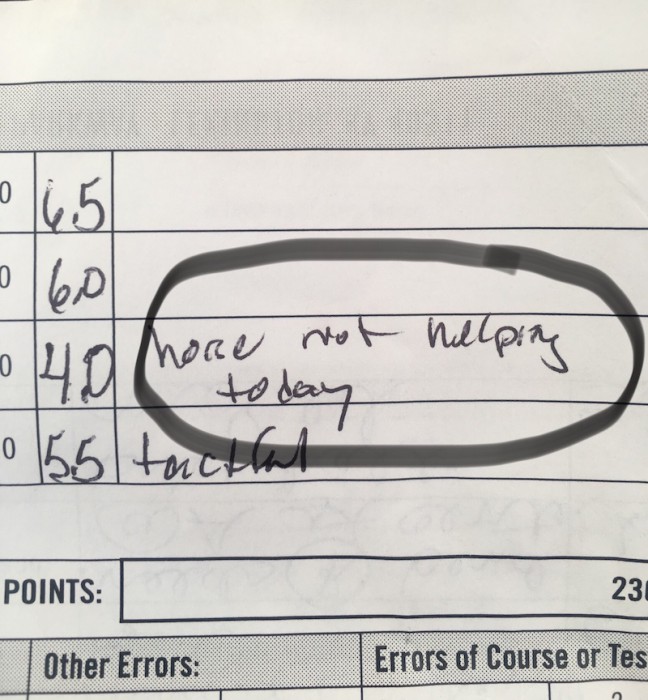 0 6.5
0 6.0
0 4.0 horse not helping
today
0 5.5 tactful
POINTS: 23
Other Errors: Errors of Course or Tes